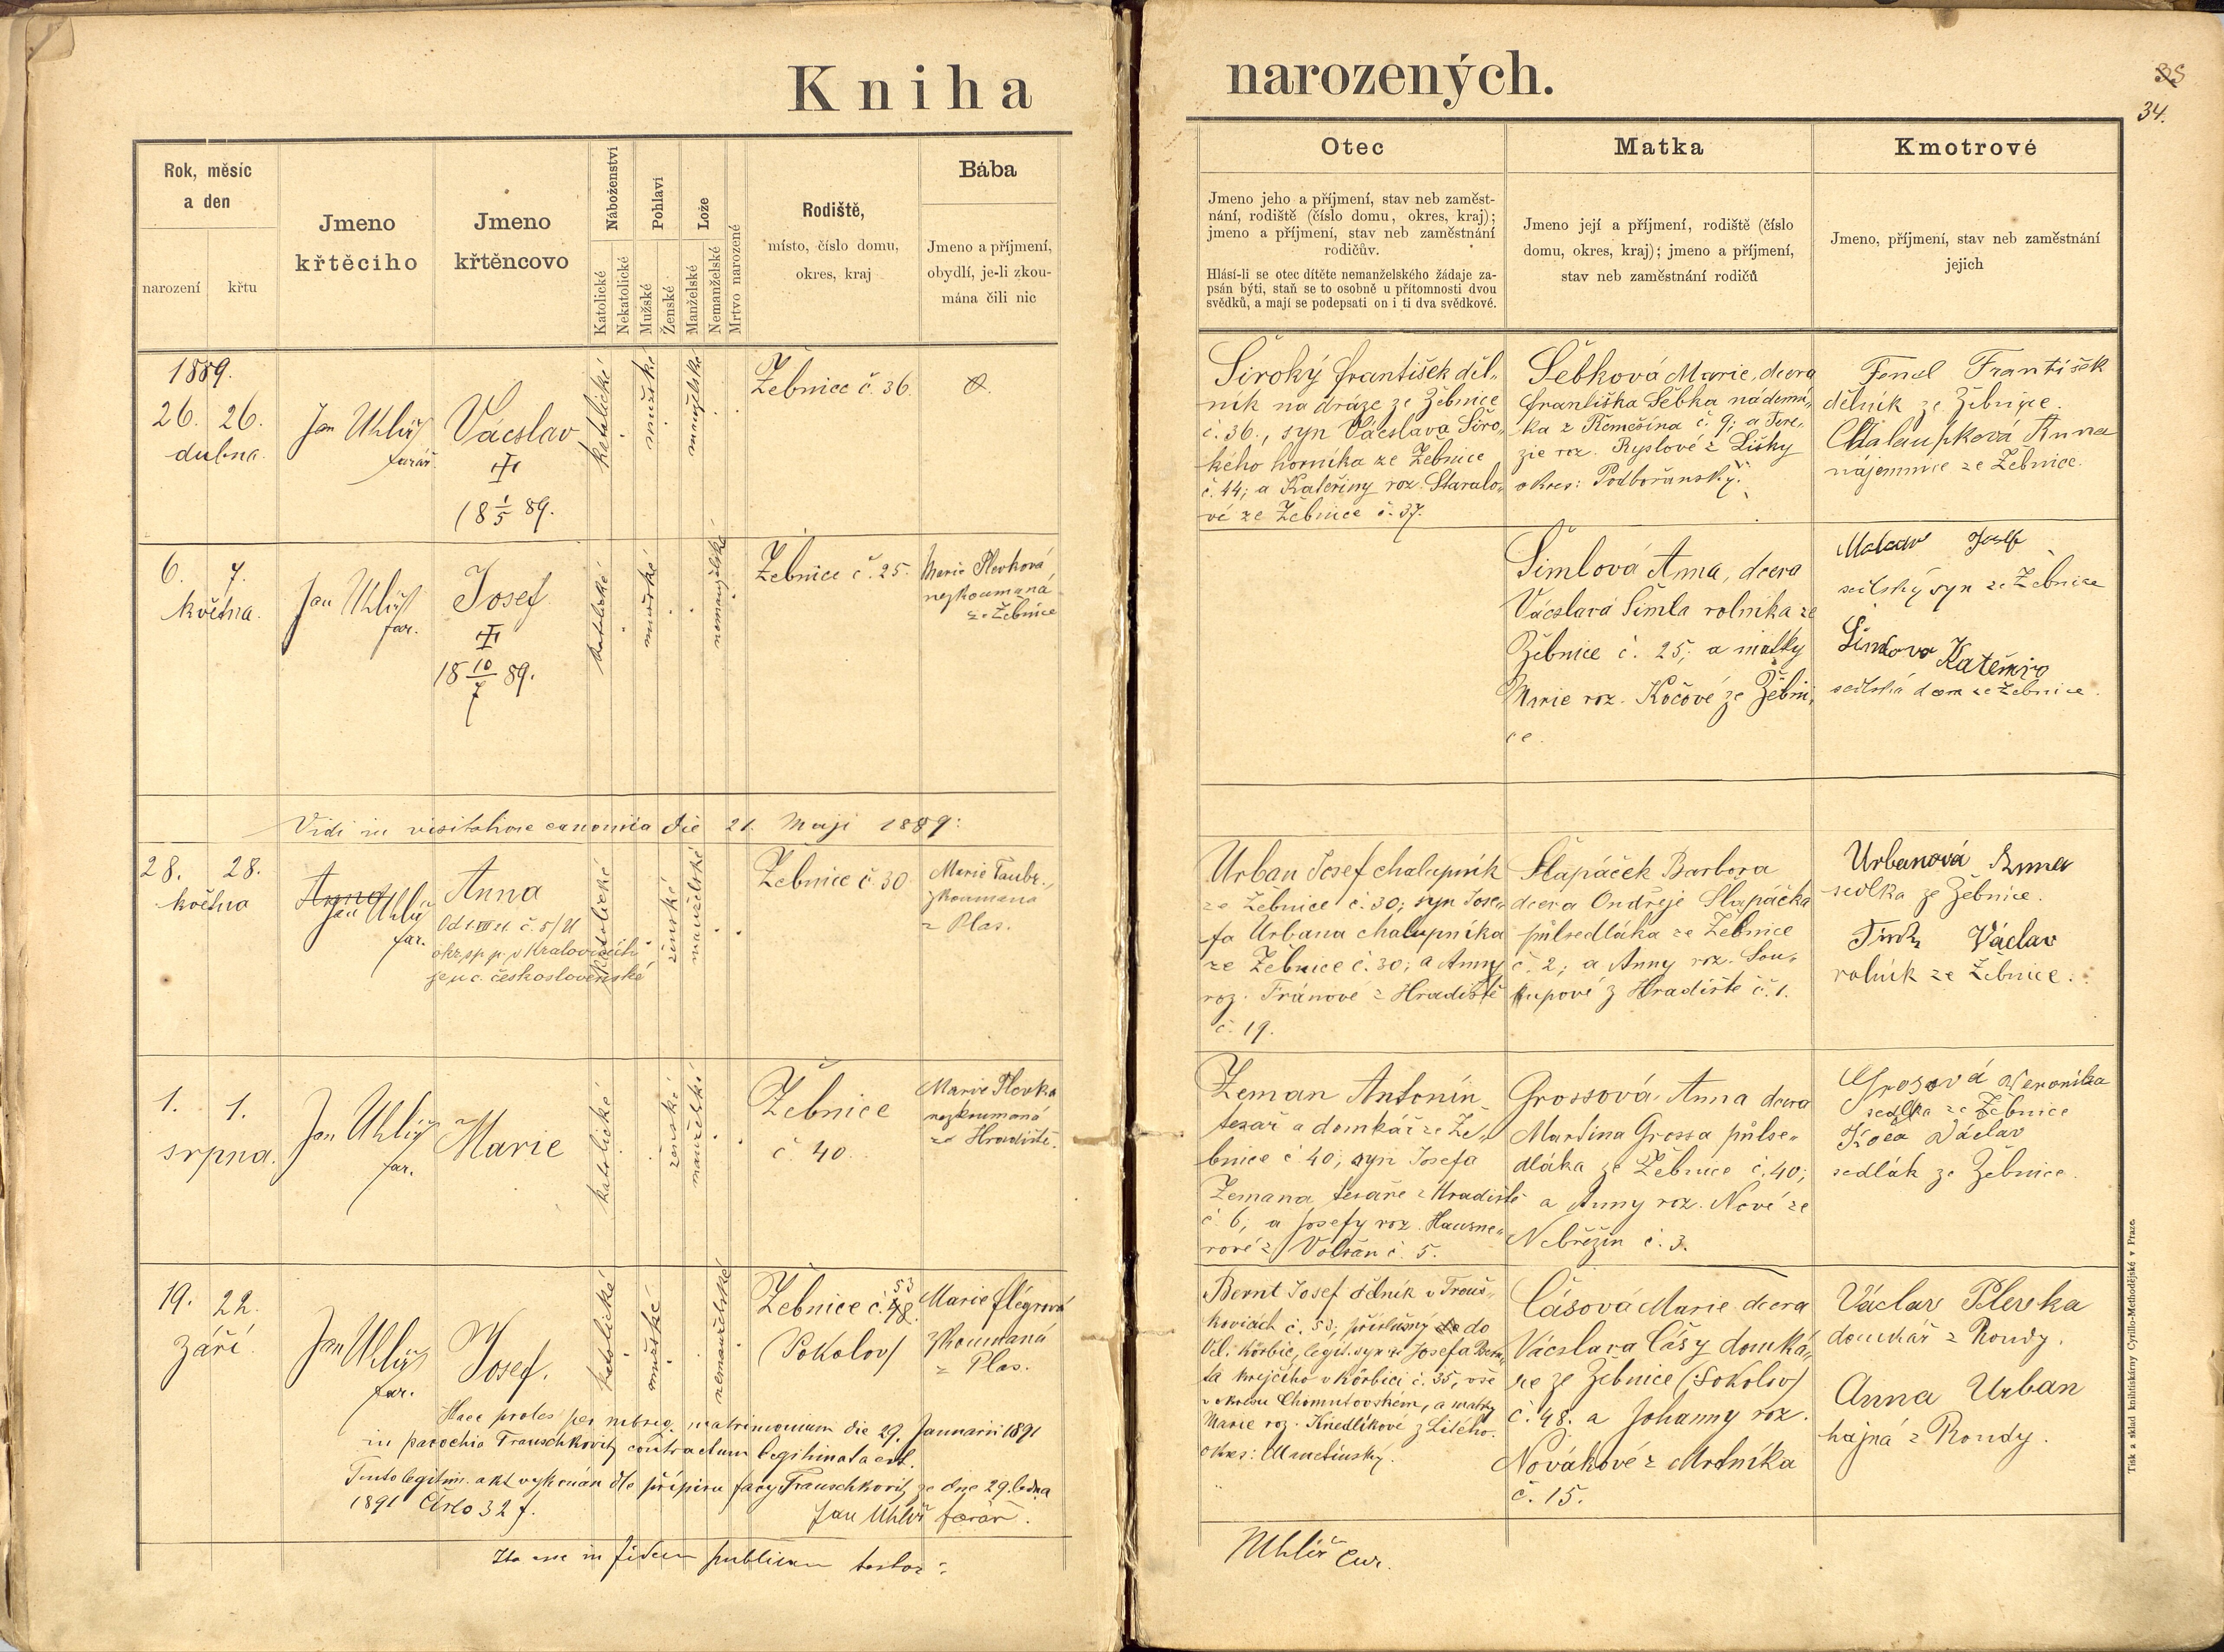 Kniha
narozených.
35
34.
Rok, měsíc
a den
narození
křtu
Jmeno
křtěciho
Jmeno
křtěncovo
Náboženství
Katolické
Nekatolické
Pohlaví
Mužské
Ženské
Lože
Manželské
Nemanželské
Mrtvo narozené
Rodiště,
místo, číslo domu,
okres, kraj
Bába
Jmeno a příjmení,
obydlí, je-li zkou-
mána čili nic
Otec
Jmeno jeho a příjmení, stav neb zaměst-
nání, rodiště (číslo domu, okres, kraj);
jmeno a příjmení, stav neb zaměstnání
rodičův.
Hlásí-li se otec dítěte nemanželského žádaje za-
psán býti, staň se to osobně u přítomnosti dvou
svědků, a mají se podepsati on i ti dva svědkové.
Matka
Jmeno její a příjmení, rodiště (číslo
domu, okres, kraj); jmeno a příjmení,
stav neb zaměstnání rodičů
Kmotrové
Jmeno, příjmení, stav neb zaměstnání
jejich
1889.
26. 26.
dubna.
Jan Uhlíř
farář
Václav
18 1/5 89.
katolické
mužské
manželské
Žebnice č. 36.
Široký František děl-
ník na dráze ze Žebnice
č. 36., syn Václava Širo-
kého horníka ze Žebnice
č. 44; a Kateřiny roz. Staralo-
vé ze Žebnice č. 37.
Šebková Marie, dcera
Františka Šebka nádení-
ka z Němečína č. 9; a Tere-
zie roz. Ryslové z Lišky
okres: Podbořanský.
Fenel František
dělník ze Žebnice.
Chalaupková Anna
nájemnice ze Žebnice.
6. 7.
května.
Jan Uhlíř
far.
Josef
18 10/7 89.
katolické
mužské
nemanželské
Žebnice č. 25.
Marie Plevková
nezkoumaná
ze Žebnice
Šimlová Anna, dcera
Václava Šimla rolníka ze
Žebnice č. 25; a matky
Marie roz. Kočové ze Žebni-
ce.
Josef
selský syn ze Žebnice
Šimlova Kateřina
selská dcera ze Žebnice.
Vidi in visitatione canonica die 21. Maji 1889:
28. 28.
května
Anna
Jan Uhlíř
far.
Anna
č. 5/21
okr. sp. p. v Kralovicích
je n. c. československé
katolické
ženské
manželské
Žebnice č. 30
Marie Taubr.,
zkoumana
z Plas.
Urban Josef chalupník
ze Žebnice č. 30; syn Jose-
fa Urbana chalupníka
ze Žebnice č. 30; a Anny
roz. Fránové z Hradiště
č. 19.
Šlapáček Barbora
dcera Ondřeje Šlapáčka
půlsedláka ze Žebnice
č. 2; a Anny roz. Sou-
kupové z Hradiště č. 1.
Urbanová Anna
sedlka ze Žebnice.
Václav
rolník ze Žebnice.
1. 1.
srpna.
Jan Uhlíř
far.
Marie
katolické
ženské
manželské
Žebnice
č. 40.
Marie Plevka
nezkoumaná
ze Hradiště.
Zeman Antonín
tesař a domkář ze Že-
bnice č. 40; syn Josefa
Zemana tesaře z Hradiště
č. 6; a Josefy roz. Hausne-
rové z Volšan č. 5.
Grossová Anna dcera
Martina Grossa půlse-
dláka ze Žebnice č. 40;
a Anny roz. Nové ze
Nebřezin č. 3.
Grosová Weronika
sedlka ze Žebnice
Václav
sedlák ze Žebnice.
19. 22.
září.
Jan Uhlíř
far.
Josef.
katolické
mužské
nemanželské
53
Žebnice č. 48.
(Sokolov)
Marie Flégrová
zkoumaná
z Plas.
Bernt Josef dělník v Trouš-
kovicích č. 53; příslušný do
Vel. Körbic, legit. syn Josefa Bern-
ta krejčího v Körbici č. 35, vše
v okresu Chomutovském, a matky
Marie roz. Knedlíkové z Litého.
okres: Manetínský.
Čásová Marie dcera
Václava Čásy domká-
ře ze Žebnice (Sokolov)
č. 48. a Johanny roz.
Novákové z Mrtníka
č. 15.
Václav Plevka
domkář z Rondy.
Anna Urban
hajná z Rondy.
Haec proles per subseq. matrimonium die 29. Januarii 1891
in parochia Trauschkovitz contractum legitimata est.
Tento legitim. akt vykonán dle přípisu fary Trauschkovitz ze dne 29. ledna
1891 Číslo 32 f.
Jan Uhlíř farář.
Ita esse in fidem publicam testor:
Uhlíř Cur.
Tisk a sklad knihtiskárny Cyrillo-Methodějské v Praze.